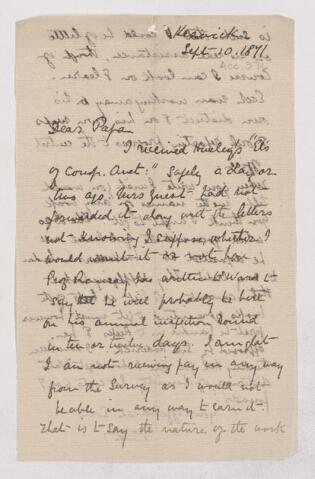 Keswick
Sept. 10. 1871
Dear Papa
I received Huxley's "Els
of Comp. Anat:" safely a day or
this ago. Mrs Guest had not
forwarded it along with the letters
not knowing I suppose whether I
would want it or not.
Prof Ramsay has written to Ward to
say that he will probably be here
on his annual inspection round
in ten or twelve days. I am glad
I am not receiving pay in any way
from the Survey as I would not
be able in any way to earn it.
That is to say the nature of the work